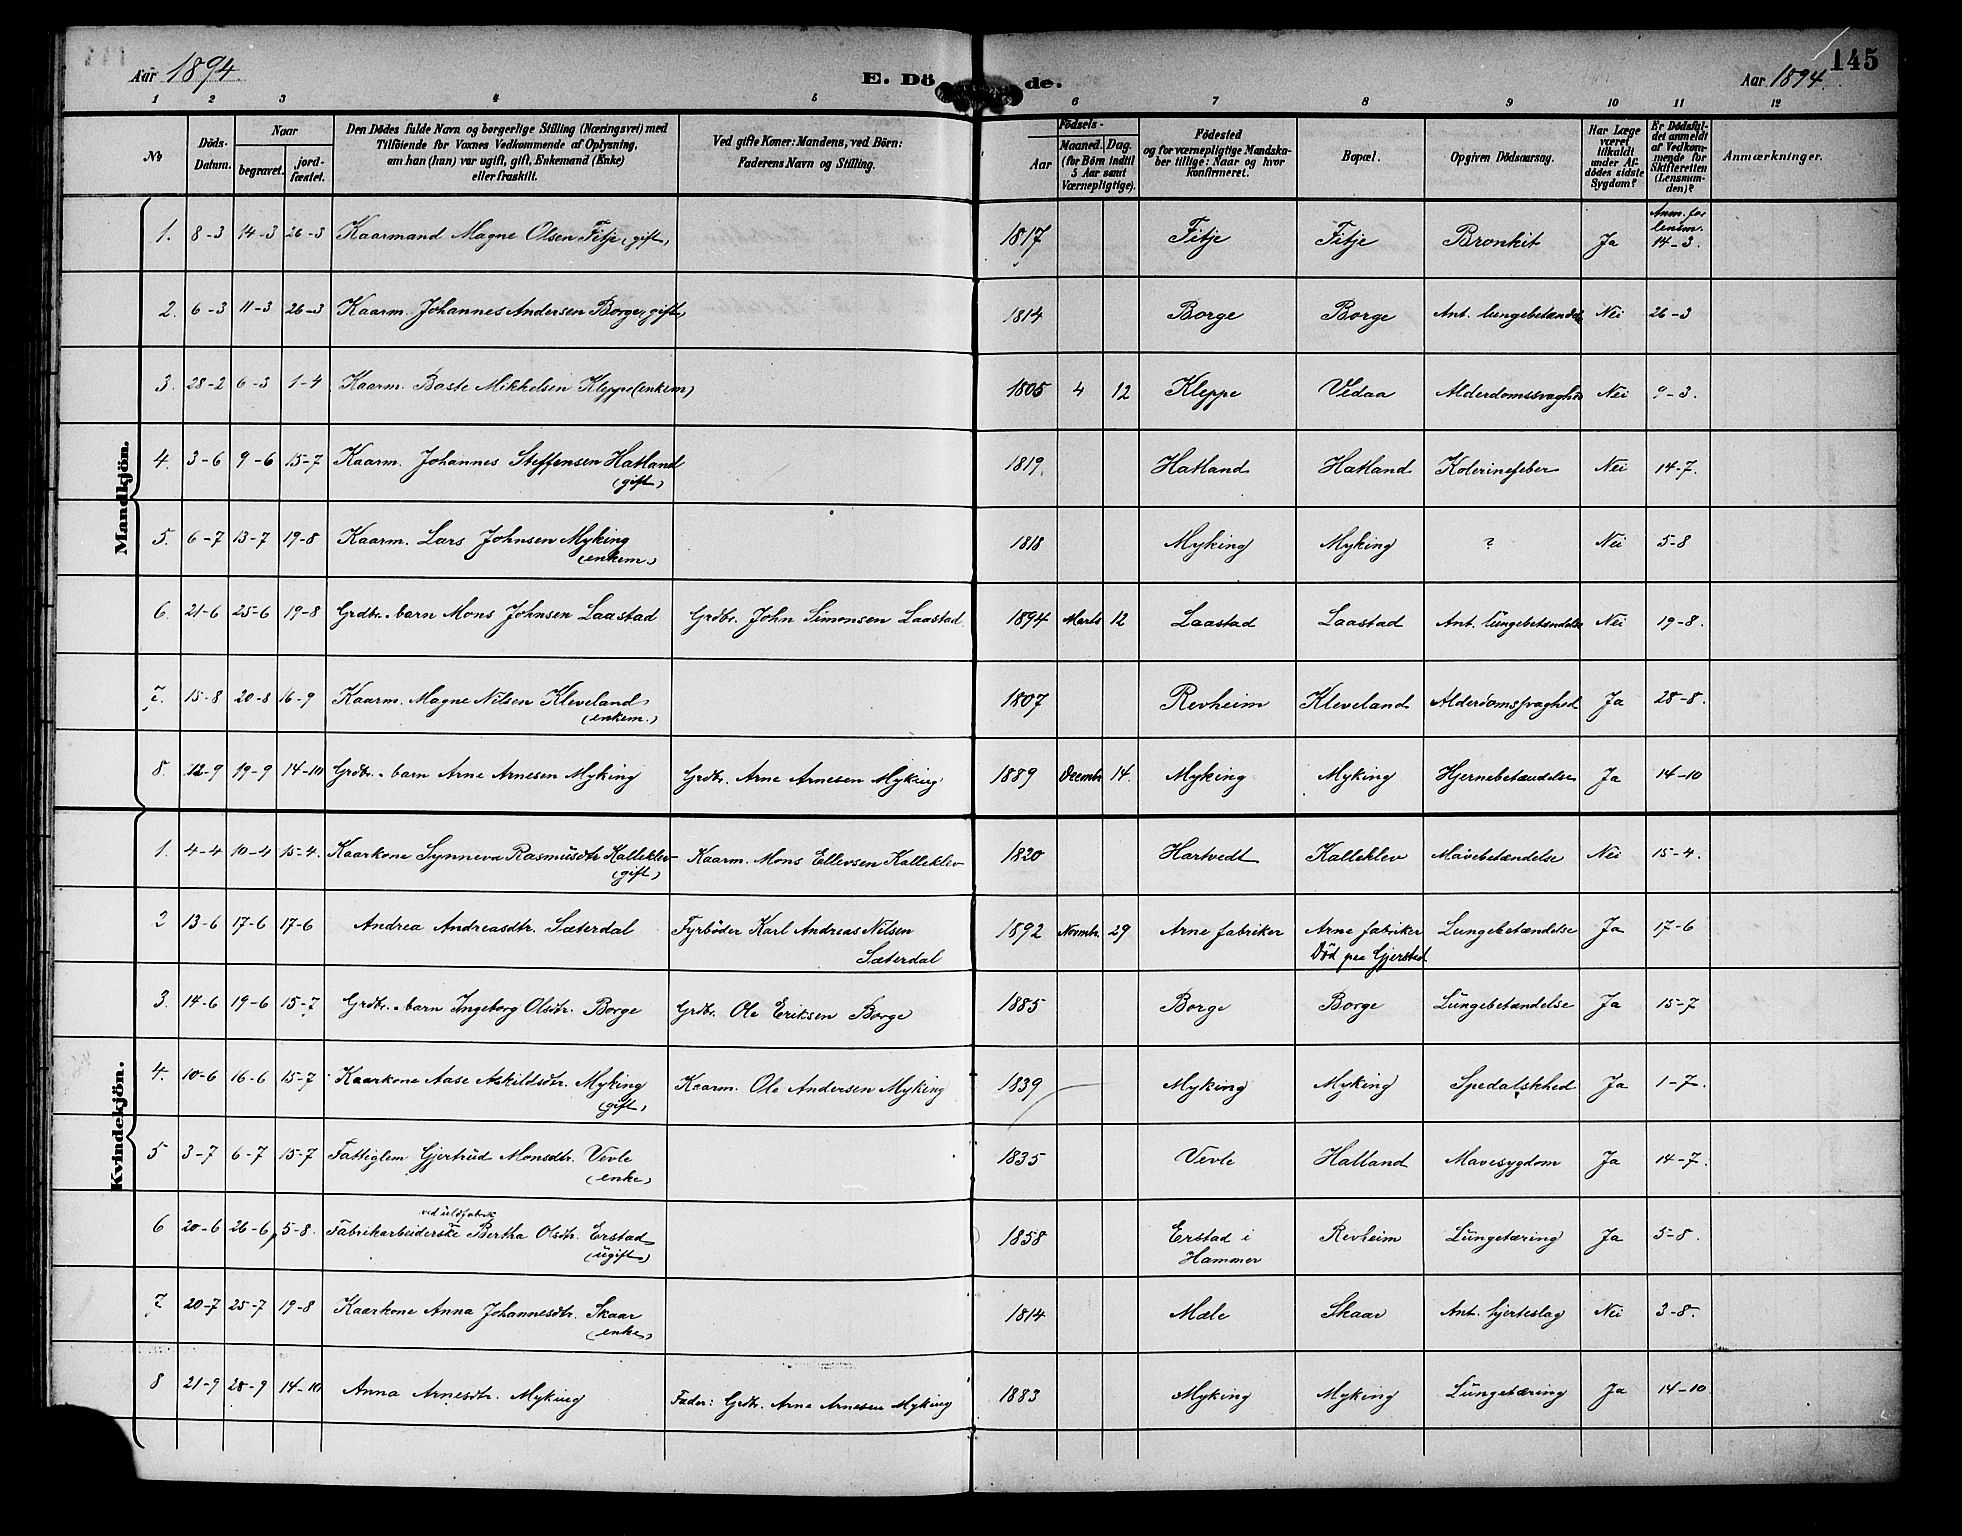 Aar 1894.
E. Dö de.
Aar 1894.
145
1 2 3 4 5 6 7 8 9 10 11 12
No
Döds-Datum.
Naar
begravet.
jord-fæstet.
Den Dödes fulde Navn og borgerlige Stilling (Næringsvei) med
Tilföiende for Voxnes Vedkommende af Oplysning,
om han (hun) var ugift, gift, Enkemand (Enke)
eller fraskilt.
Ved gifte Koner: Mandens, ved Börn:
Faderens Navn og Stilling.
Födsels-
Aar
Maaned. Dag.
(for Börn indtil
5 Aar samt
Værnepligtige).
Födested
og for værnepligtige Mandska-
ber tillige: Naar og hvor
konfirmeret.
Bopæl.
Opgiven Dödsaarsag.
Har Læge
været
tilkaldt
under Af-
dödes sidste
Sygdom?
Er Dödsfal-
det anmeldt
af Vedkom-
mende for
Skifteretten
(Lensman-
den)?
Anmærkninger.
Mandkjön.
1. 8-3 14-3 26-3 Kaarmand Magne Olsen Fitje (gift) 1817 Fitje Fitje Bronkit Ja Anm. for lensm. 14-3.
2. 6-3 11-3 26-3 Kaarm. Johannes Andersen Borge, gift, 1814 Borge Borge Ant. lungebetændelse Nei 26-3
3. 28-2 6-3 1-4 Kaarm. Baste Mikkelsen Kleppe (enkem) 1805 4 12 Kleppe Vedaa Alderdomssvaghed Nei 9-3.
4. 3-6 9-6 15-7 Kaarm. Johannes Steffensen Hatland 1819. Hatland Hatland Kolerinefeber Nei 14-7.
(gift)
5. 6-7 13-7 19-8 Kaarm. Lars Johnsen Myking 1818 Myking Myking ? Nei 5-8
(enkem)
6. 21-6 25-6 19-8 Grdbr.-barn Mons Johnsen Laastad Grdbr. John Simonsen Laastad 1894 Marts 12 Laastad Laastad Ant. lungebetændelse Nei 19-8.
7. 15-8 20-8 16-9 Kaarm. Magne Nilsen Kleveland 1807 Revheim Kleveland Alderdomssvaghed Ja 28-8.
(enkem.)
8. 12-9 19-9 14-10 Grdbr.-barn Arne Arnesen Myking Grdbr. Arne Arnesen Myking 1889 Decembr. 14. Myking Myking Hjernebetændelse Ja 14-10
Kvindekjön.
1. 4-4 10-4 15-4. Kaarkone Synneva Rasmusdtr. Kalleklev Kaarm. Mons Ellevsen Kalleklev 1820 Hartvedt Kalleklev Mavebetændelse Nei 15-4.
(gift)
2 13-6 17-6 17-6 Andrea Andreasdtr. Sæterdal Fyrböder Karl Andreas Nilsen 1892 Novmbr. 29 Arne fabriker Arne fabriker Lungebetændelse Ja 17-6
Sæterdal Död paa Gjerstad
3. 14-6 19-6 15-7 Grdbr.-barn Ingeborg Olsdtr. Borge Grdbr. Ole Eriksen Borge 1885 Borge Borge Lungebetændelse Ja 15-7
4. 10-6 16-6 15-7 Kaarkone Aase Askildsdtr. Myking Kaarm. Ole Andersen Myking 1839 Myking Myking Spedalskhed Ja 1-7.
(gift)
5 3-7 6-7 15-7 Fattiglem Gjertrud Monsdtr. Vevle 1835 Vevle Hatland Mavesygdom Ja 14-7.
(enke)
ved uldfabrik
6 20-6 26-6 5-8. Fabrikarbeiderske Bertha Olsdtr. Erstad 1858 Erstad i Revheim Lungetæring Ja 5-8.
(ugift) Hammer
7 20-7 25-7 19-8 Kaarkone Anna Johannesdtr. Skaar 1814 Mæle Skaar Ant. hjerteslag Nei 3-8.
(enke)
8 21-9 28-9 14-10 Anna Arnesdtr. Myking Fader: Grdbr. Arne Arnesen Myking 1883 Myking Myking Lungetæring Ja 14-10